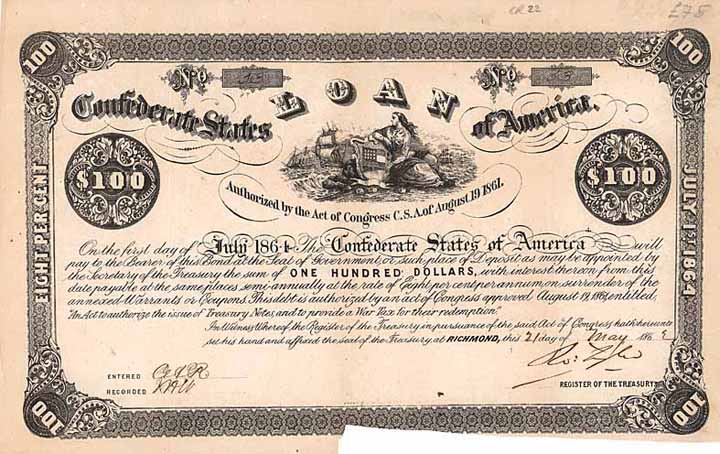 CR 22 £75
100 100
No 33 LOAN No 33
Confederate States of America.
$100 $100
Authorized by the Act of Congress C.S.A. of August 19 1861.
EIGHT PER CENT
JULY 1st 1864
On the first day of July 1864 The Confederate States of America will
pay to the Bearer of this Bond at the Seat of Government, or such place of Deposit as may be appointed by
the Secretary of the Treasury the sum of ONE HUNDRED DOLLARS, with interest thereon from this
date payable at the same places semi-annually at the rate of Eight per cent per annum on surrender of the
annexed Warrants or Coupons. This debt is authorized by an act of Congress approved August 19, 1861, entitled,
"An Act to authorize the issue of Treasury Notes, and to provide a War Tax for their redemption."
In Witness Whereof, the Register of the Treasury in pursuance of the said Act of Congress hath hereunto
set his hand and affixed the seal of the Treasury, at RICHMOND, this 21 day of May 1862
ENTERED
RECORDED
REGISTER OF THE TREASURY
100 100